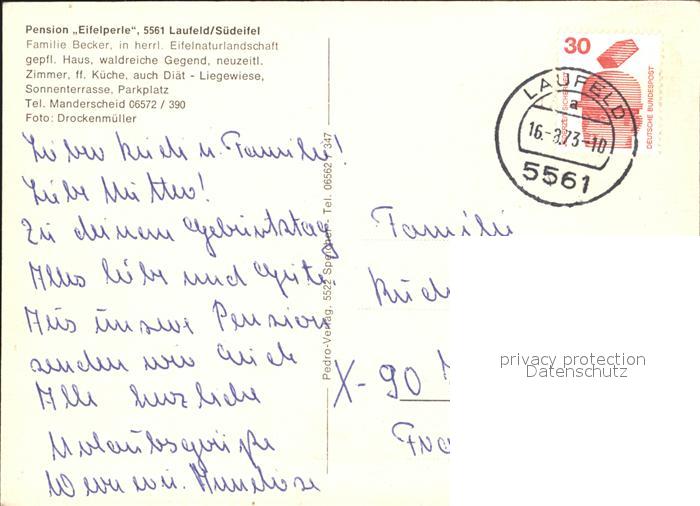 Pension „Eifelperle“, 5561 Laufeld/Südeifel
Familie Becker, in herrl. Eifelnaturlandschaft
gepfl. Haus, waldreiche Gegend, neuzeitl.
Zimmer, ff. Küche, auch Diät - Liegewiese,
Sonnenterrasse, Parkplatz
Tel. Manderscheid 06572 / 390
Foto: Drockenmüller
u. Familie!
Liebe Mutter!
Zu deinem Geburtstag
Alles liebe und Gute.
Aus unserer Pension
senden wir Euch
Alle herzliche
Urlaubsgrüße
Pedro-Verlag, 5522 Speicher - Tel. 06562 347
30
DEUTSCHE BUNDESPOST
LAUFELD
a
16.-3.73-10
5561
Familie
X-90
privacy protection
Datenschutz